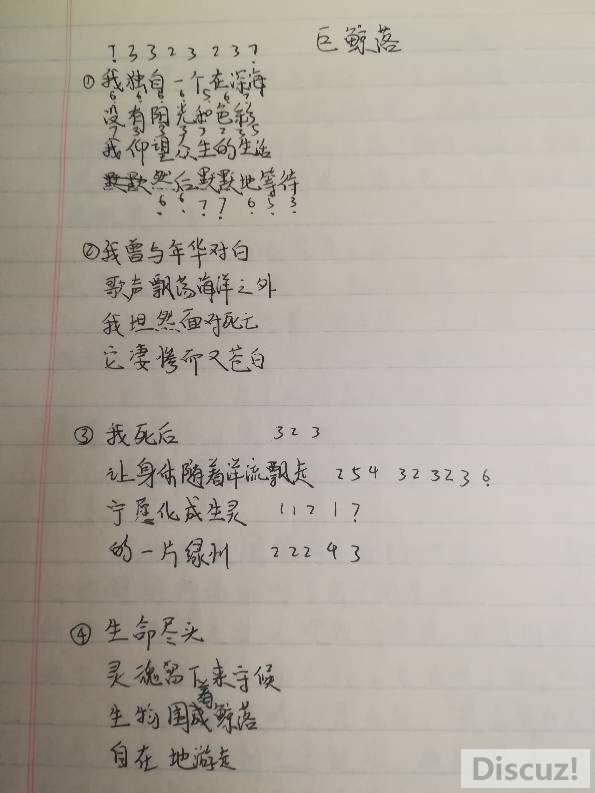 巨鲸落
7 3 3 2 3 2 3 7
①我独自一个在深海
6 6 6 6 5 6 7
没有阳光和色彩
7 3 3 3 2 2 3 5
我仰望众生的生活
然后默默地等待
6 6 7 7 6 5 3
②我曾与年华对白
歌声飘荡海洋之外
我坦然面对死亡
它凄惨而又苍白
③ 我死后 3 2 3
让身体随着洋流飘走 2 5 4 3 2 3 2 3 6
宁愿化成生灵 1 1 2 1 7
的一片绿州 2 2 2 4 3
④ 生命尽头
灵魂留下来守候
着
生物围成鲸落
自在地游走
Discuz!